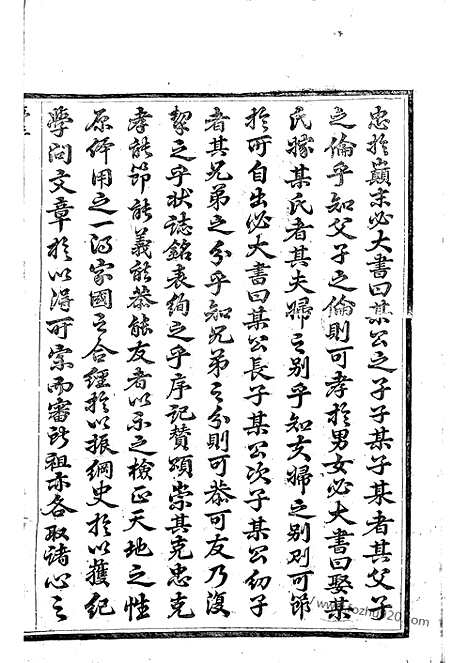 忠於巔末必大書曰某公之子子某子某者其父子
之倫乎知父子之倫則可孝於男女必大書曰娶某
氏嫁某氏者其夫婦之别乎知夫婦之别則可節
於所自出必大書曰某公長子某公次子某公幼子
者其兄弟之分乎知兄弟之分則可恭可友乃復
絜之乎狀誌銘表絢之乎序記贊頌崇其克忠克
孝能節能義能恭能友者以示之檢正天地之性
原倅用之一得家國之合經於以振綱史於以獲紀
學問文章於以得所宗而審所祖亦各取諸心之